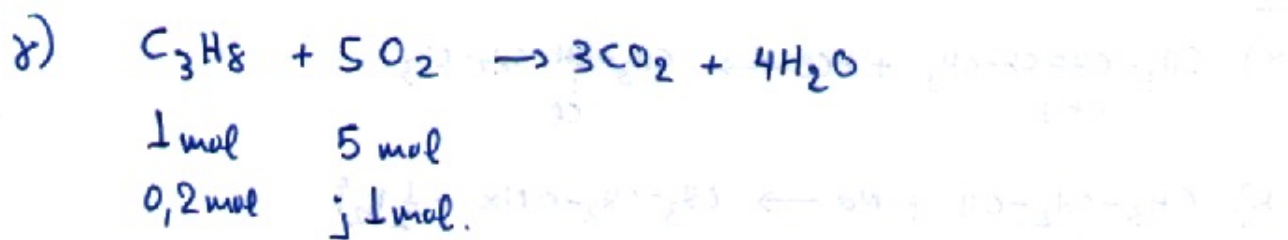 γ) C₃H₈ + 5O₂ → 3CO₂ + 4H₂O
1 mol 5 mol
0,2 mol ; 1 mol.